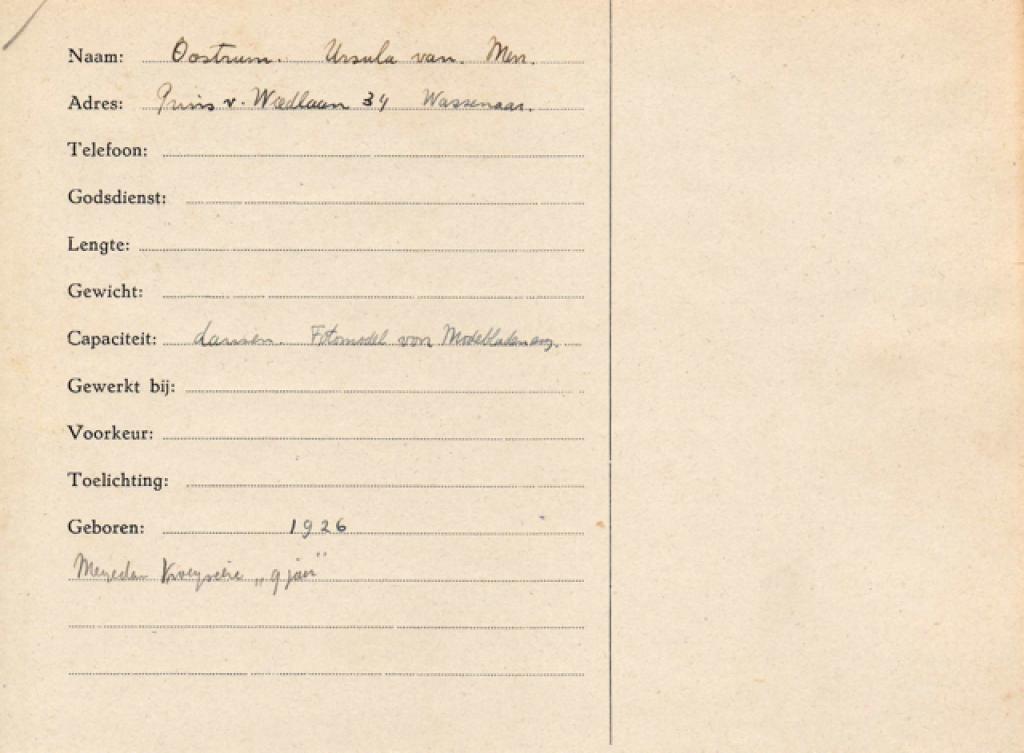 Naam: Oostrum. Ursula van. Mev.
Adres: Prins v. Wiedlaan 34 Wassenaar.
Telefoon:
Godsdienst:
Lengte:
Gewicht:
Capaciteit: dansen. Fotomodel voor Modebladen enz.
Gewerkt bij:
Voorkeur:
Toelichting:
Geboren: 1926
„9 jaar"